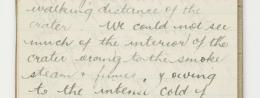 walking distance of the
crater. We could not see
much of the interior of the
crater owing to the smoke
steam & fumes, & owing
to the intense cold of